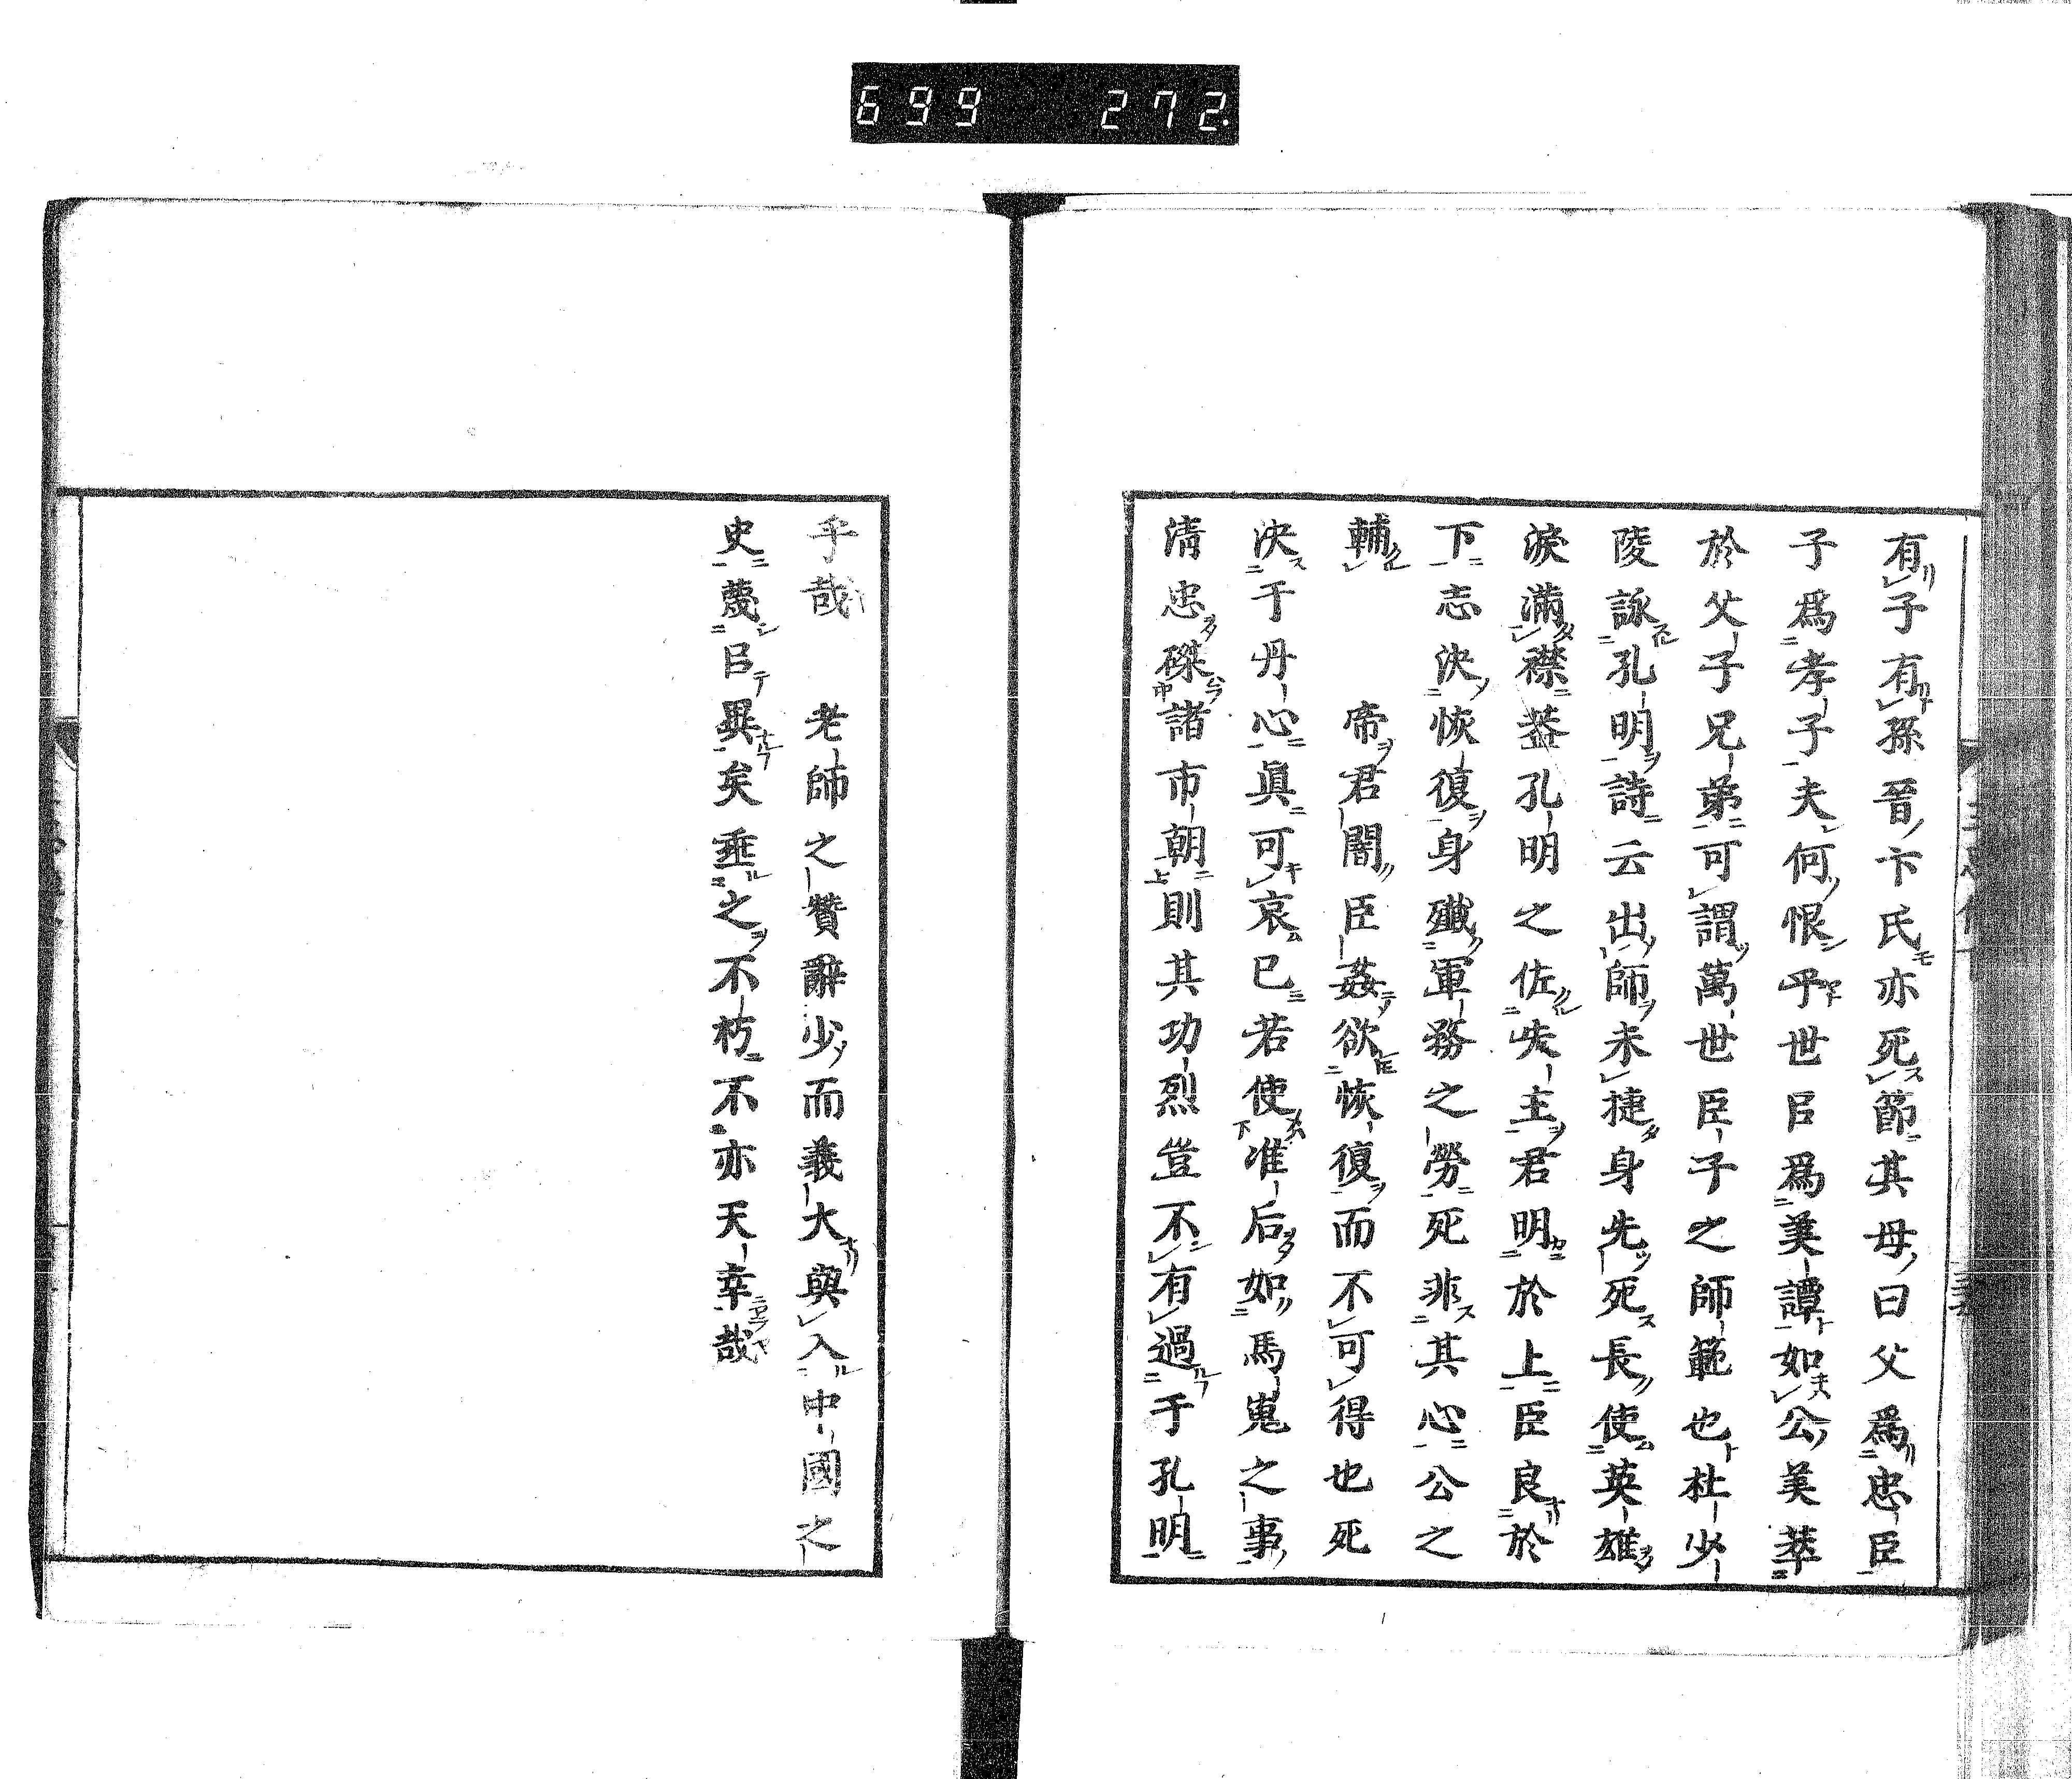 699 272.
有子有孫晉卞氏亦死節其母曰父爲忠臣
子爲孝子夫何恨乎世㠯爲美譚如公美萃
於父子兄弟可謂萬世臣子之師範也杜少
陵詠孔明詩云出師未捷身先死長使英雄
淚滿襟葢孔明之佐主君明於上臣良於
下志決恢復身殲軍務之勞死非其心公之
輔 帝君闇臣姦欲恢復而不可得也死
決于丹心眞可哀已若使准后如馬嵬之事
清忠磔諸市朝則其功烈豈不有過于孔明
乎哉 老師之贊辭少而義大與入中國之
史蔑㠯異矣垂之不朽不亦天幸哉